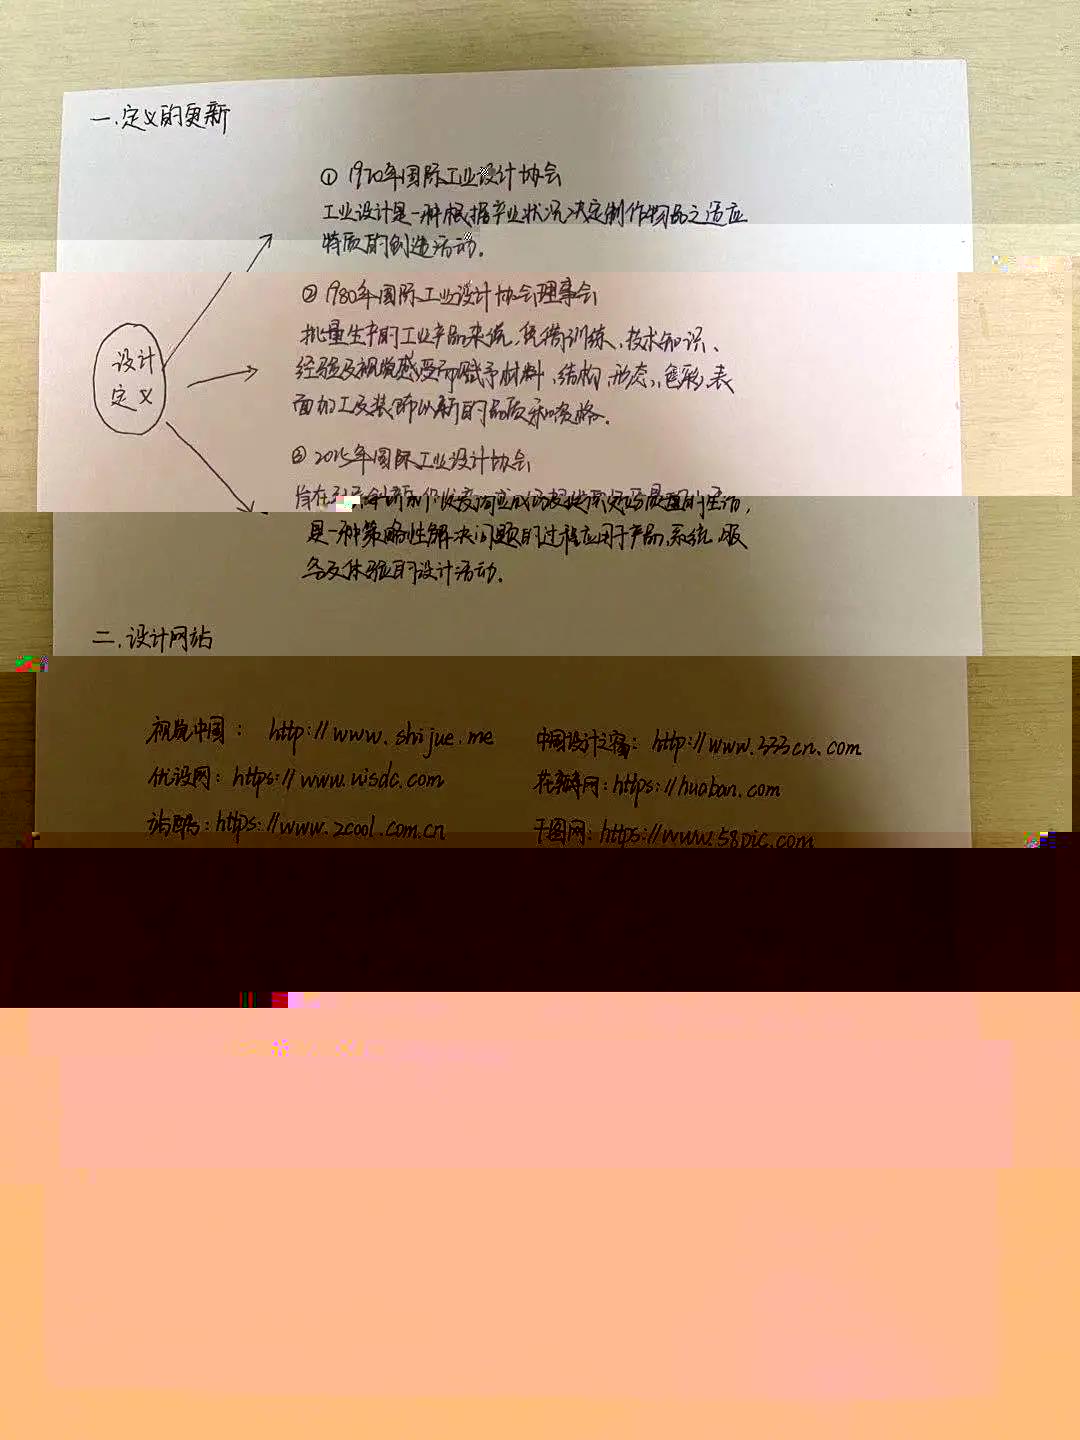 一.定义的更新
① 1970年国际工业设计协会
工业设计是一种根据产业状况决定制作物品之适应
特质的创造活动.
② 1980年国际工业设计协会理事会
批量生产的工业产品来说,凭借训练、技术知识、
经验及视觉感受而赋予材料、结构、形态、色彩、表
面加工及装饰以新的品质和资格.
设计
定义
③ 2015年国际工业设计协会
旨在
是一种策略性解决问题的过程应用于产品、系统、服
务及体验的设计活动.
二.设计网站
视觉中国: http://www.shijue.me
中国设计之窗: http://www.333cn.com
优设网: https://www.uisdc.com
花瓣网: https://huaban.com
站酷: https://www.zcool.com.cn
千图网: https://www.58pic.com